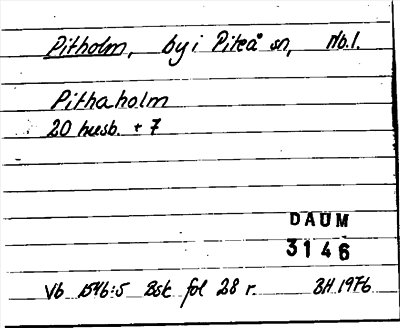 Pitholm, by i Piteå sn, Nb.l.
Pithaholm
20 husb. + 7
DAUM
3146
Vb 1546:5 Bsk fol 28 r. BH 1976